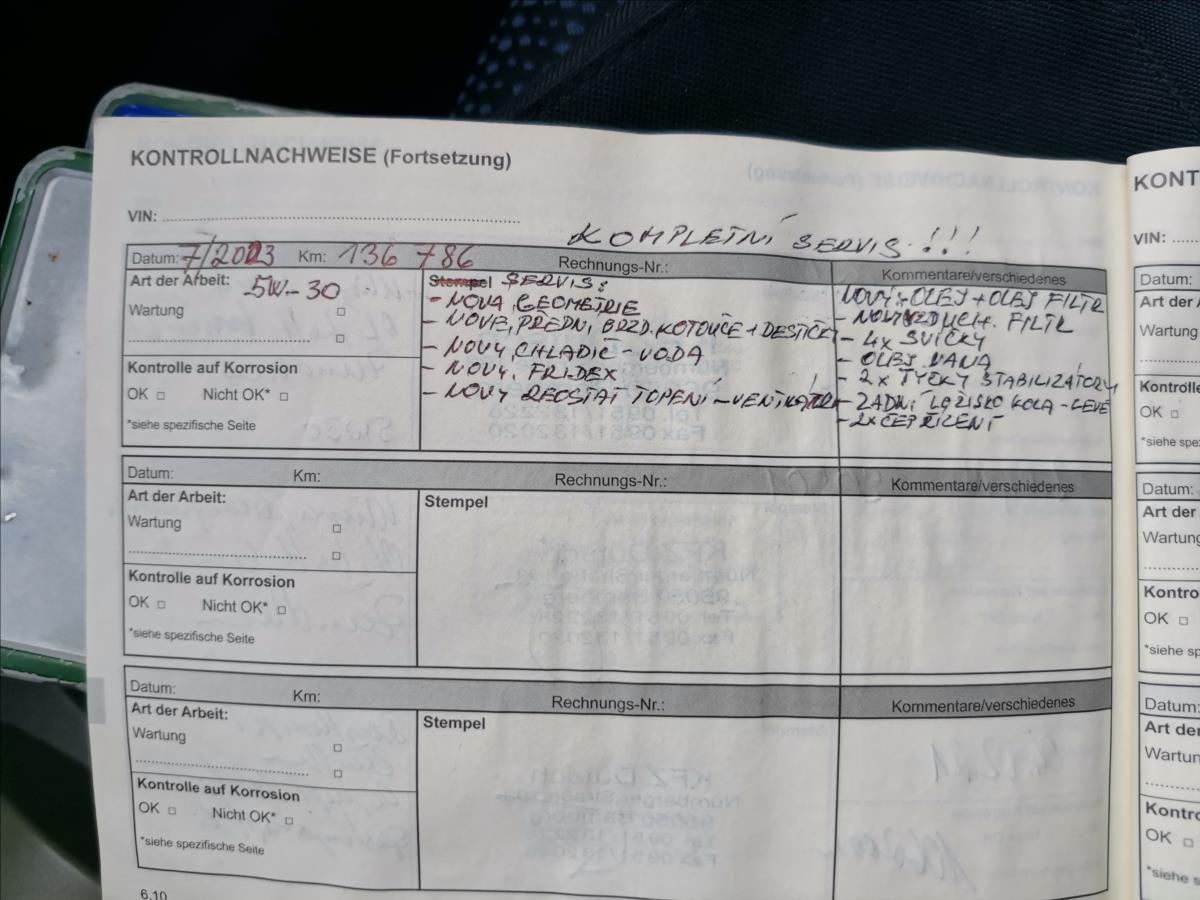 KONTROLLNACHWEISE (Fortsetzung)
VIN:
KOMPLETNÍ SERVIS!!!
Datum: 7/2023 Km: 136 786 Rechnungs-Nr.: Kommentare/verschiedenes
Art der Arbeit: 5W-30
Wartung
Kontrolle auf Korrosion
OK Nicht OK*
*siehe spezifische Seite
Stempel SERVIS:
- NOVA GEOMETRIE
- NOVÉ, PŘEDNÍ, BRZD. KOTOUČE + DESTIČKY
- NOVÝ, CHLADIČ - VODA
- NOVÝ, FRIDEX
- NOVÝ REOSTAT TOPENÍ - VENTILÁTOR
NOVÝ - OLEJ + OLEJ FILTR
- NOVÝ VZDUCH. FILTR
- 4x SVÍČKY
- OLEJ. VANA
- 2x TYČKY STABILIZÁTORU
- ZADNÍ LOŽISKO KOLA - LEVÉ
- 2x ČEP ŘÍZENÍ
Datum: Km: Rechnungs-Nr.: Kommentare/verschiedenes
Art der Arbeit:
Wartung
Kontrolle auf Korrosion
OK Nicht OK*
*siehe spezifische Seite
Stempel
Datum: Km: Rechnungs-Nr.: Kommentare/verschiedenes
Art der Arbeit:
Wartung
Kontrolle auf Korrosion
OK Nicht OK*
*siehe spezifische Seite
Stempel
6.10
KONT
VIN:
Datum:
Art der
Wartung
Kontrolle
OK
*siehe spez
Datum:
Art der
Wartung
Kontro
OK
*siehe sp
Datum:
Art der
Wartun
Kontro
OK
*siehe